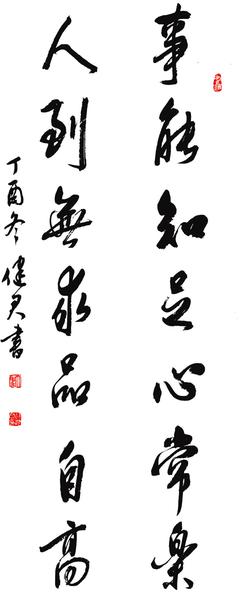 事能知足心常樂
人到無求品自高
丁酉冬健君書